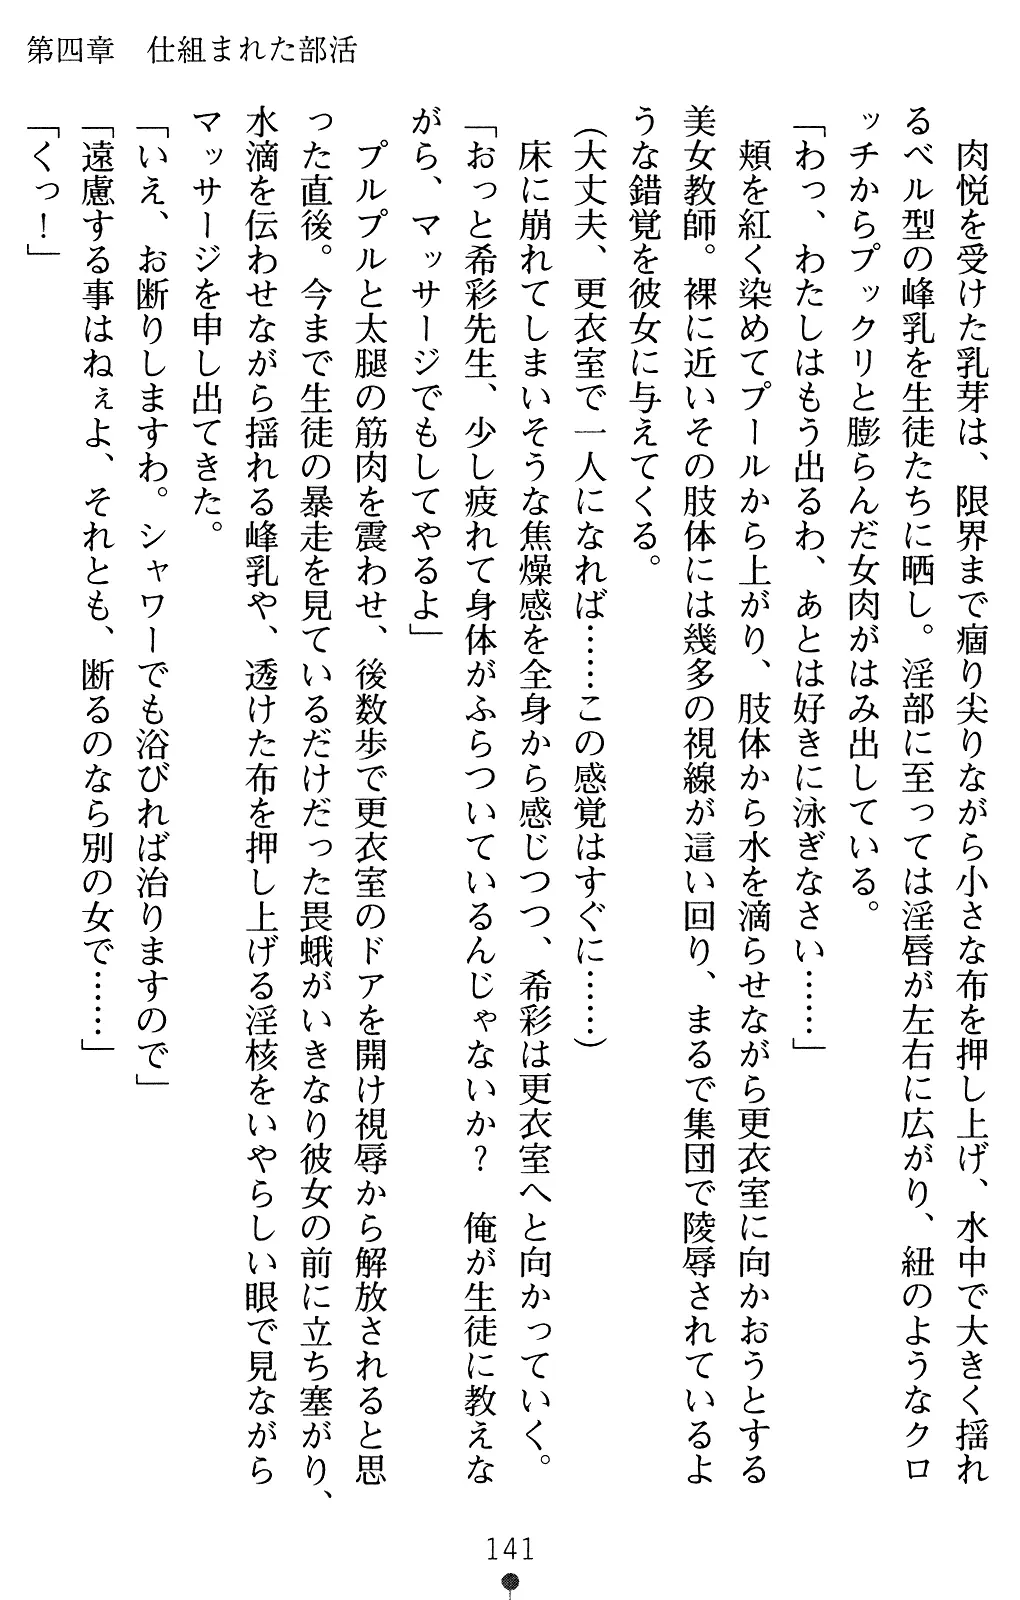 第四章　仕組まれた部活
　肉悦を受けた乳芽は、限界まで痼り尖りながら小さな布を押し上げ、水中で大きく揺れ
るベル型の峰乳を生徒たちに晒し。淫部に至っては淫唇が左右に広がり、紐のようなクロ
ッチからプックリと膨らんだ女肉がはみ出している。
「わっ、わたしはもう出るわ、あとは好きに泳ぎなさい……」
　頬を紅く染めてプールから上がり、肢体から水を滴らせながら更衣室に向かおうとする
美女教師。裸に近いその肢体には幾多の視線が這い回り、まるで集団で陵辱されているよ
うな錯覚を彼女に与えてくる。
（大丈夫、更衣室で一人になれば……この感覚はすぐに……）
　床に崩れてしまいそうな焦燥感を全身から感じつつ、希彩は更衣室へと向かっていく。
「おっと希彩先生、少し疲れて身体がふらついているんじゃないか？　俺が生徒に教えな
がら、マッサージでもしてやるよ」
　プルプルと太腿の筋肉を震わせ、後数歩で更衣室のドアを開け視辱から解放されると思
った直後。今まで生徒の暴走を見ているだけだった畏蛾がいきなり彼女の前に立ち塞がり、
水滴を伝わせながら揺れる峰乳や、透けた布を押し上げる淫核をいやらしい眼で見ながら
マッサージを申し出てきた。
「いえ、お断りしますわ。シャワーでも浴びれば治りますので」
「遠慮する事はねぇよ、それとも、断るのなら別の女で……」
「くっ！」
141